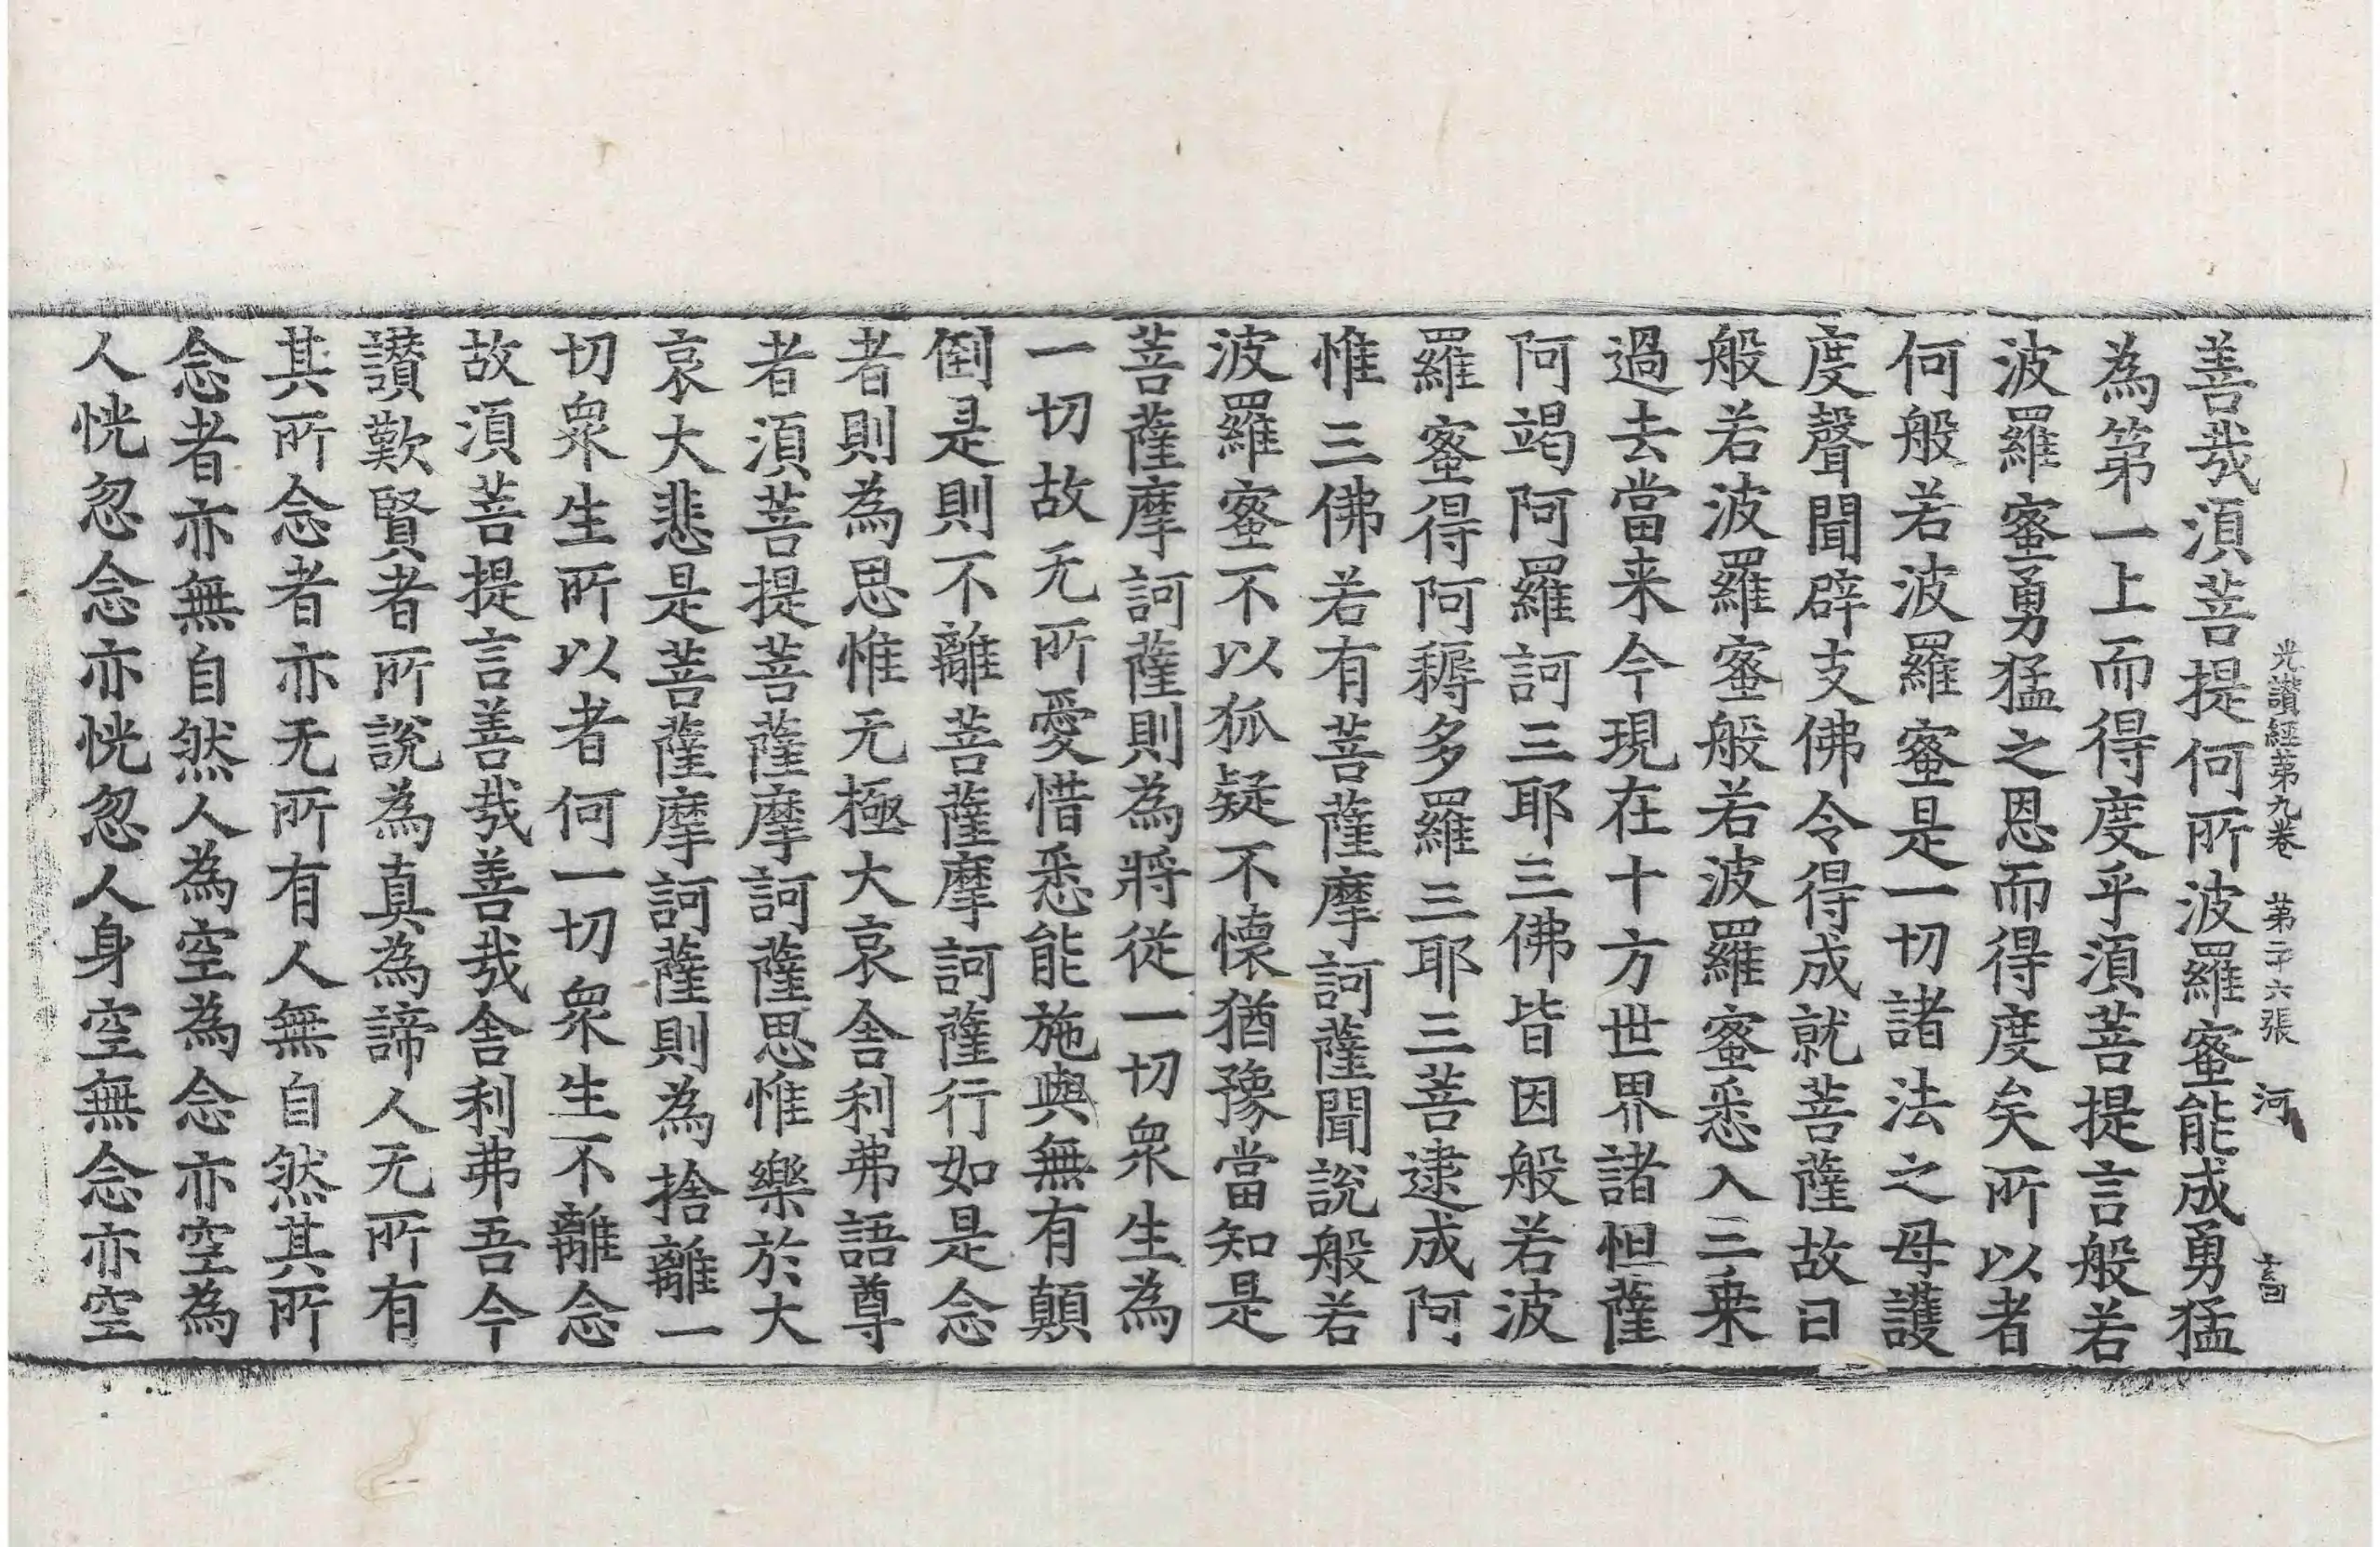 光讚經第九卷 第二十六張 河
善哉湏菩提何所波羅蜜能成勇猛
為第一上而得度乎湏菩提言般若
波羅蜜勇猛之恩而得度矣所以者
何般若波羅蜜是一切諸法之母護
度聲聞辟支佛令得成就菩薩故曰
般若波羅蜜般若波羅蜜悉入三乗
過去當来今現在十方世界諸怛薩
阿竭阿羅訶三耶三佛皆因般若波
羅蜜得阿耨多羅三耶三菩逮成阿
惟三佛若有菩薩摩訶薩聞說般若
波羅蜜不以狐疑不懷猶豫當知是
菩薩摩訶薩則為將從一切衆生為
一切故无所愛惜悉能施與無有顛
倒是則不離菩薩摩訶薩行如是念
者則為思惟无極大哀舎利弗語尊
者湏菩提菩薩摩訶薩思惟樂於大
哀大悲是菩薩摩訶薩則為捨離一
切衆生所以者何一切衆生不離念
故湏菩提言善哉善哉舎利弗吾今
讃歎賢者所說為真為諦人无所有
其所念者亦无所有人無自然其所
念者亦無自然人為空為念亦空為
人恍忽念亦恍忽人身空無念亦空